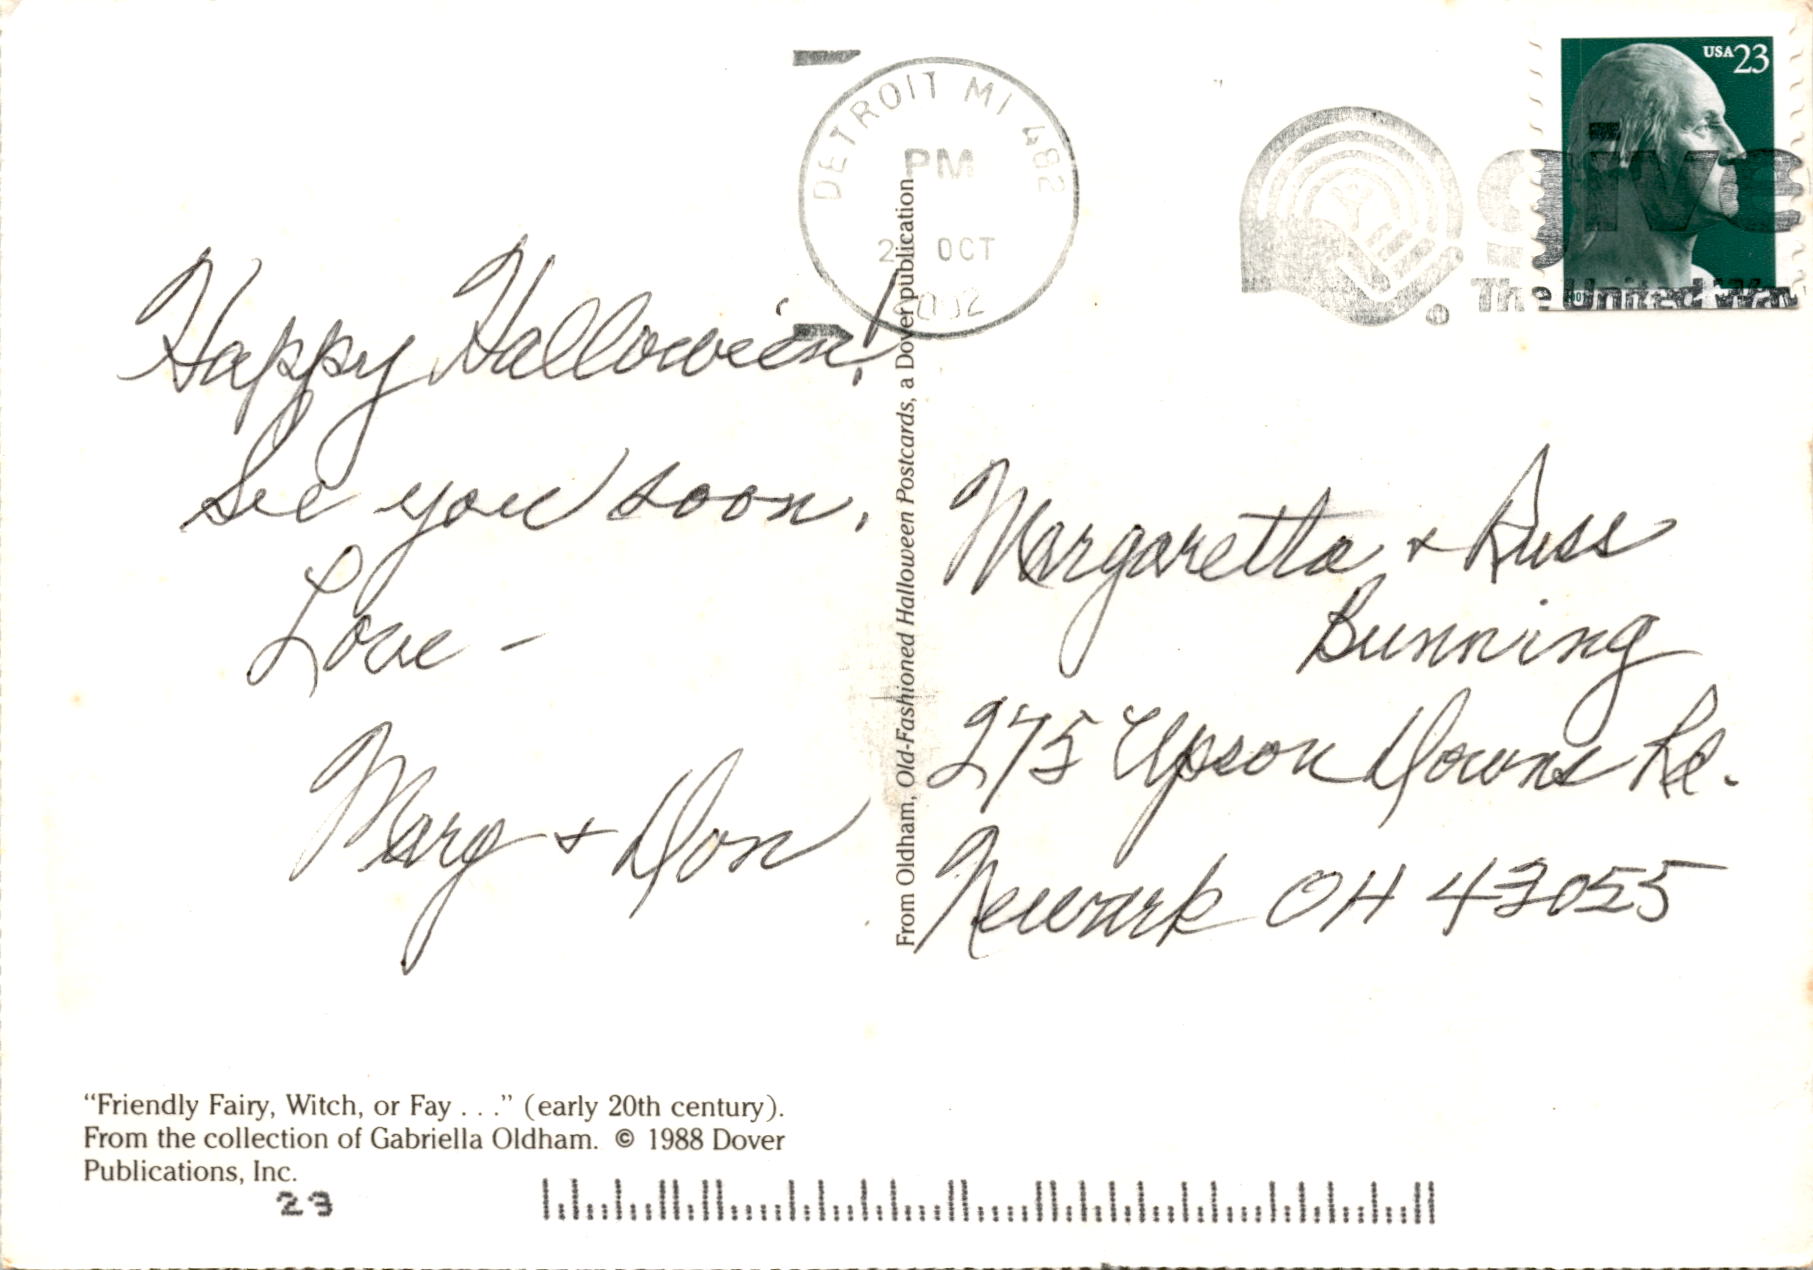 USA 23
DETROIT MI 482
PM
OCT
2002
give
The United Way
Happy Halloween!
See you soon.
Love -
Marg + Don
From Oldham, Old-Fashioned Halloween Postcards, a Dover publication
Margaretta + Russ
Bunning
275 Upson Downs Rd.
Newark OH 43055
“Friendly Fairy, Witch, or Fay . . .” (early 20th century).
From the collection of Gabriella Oldham. © 1988 Dover
Publications, Inc.
23